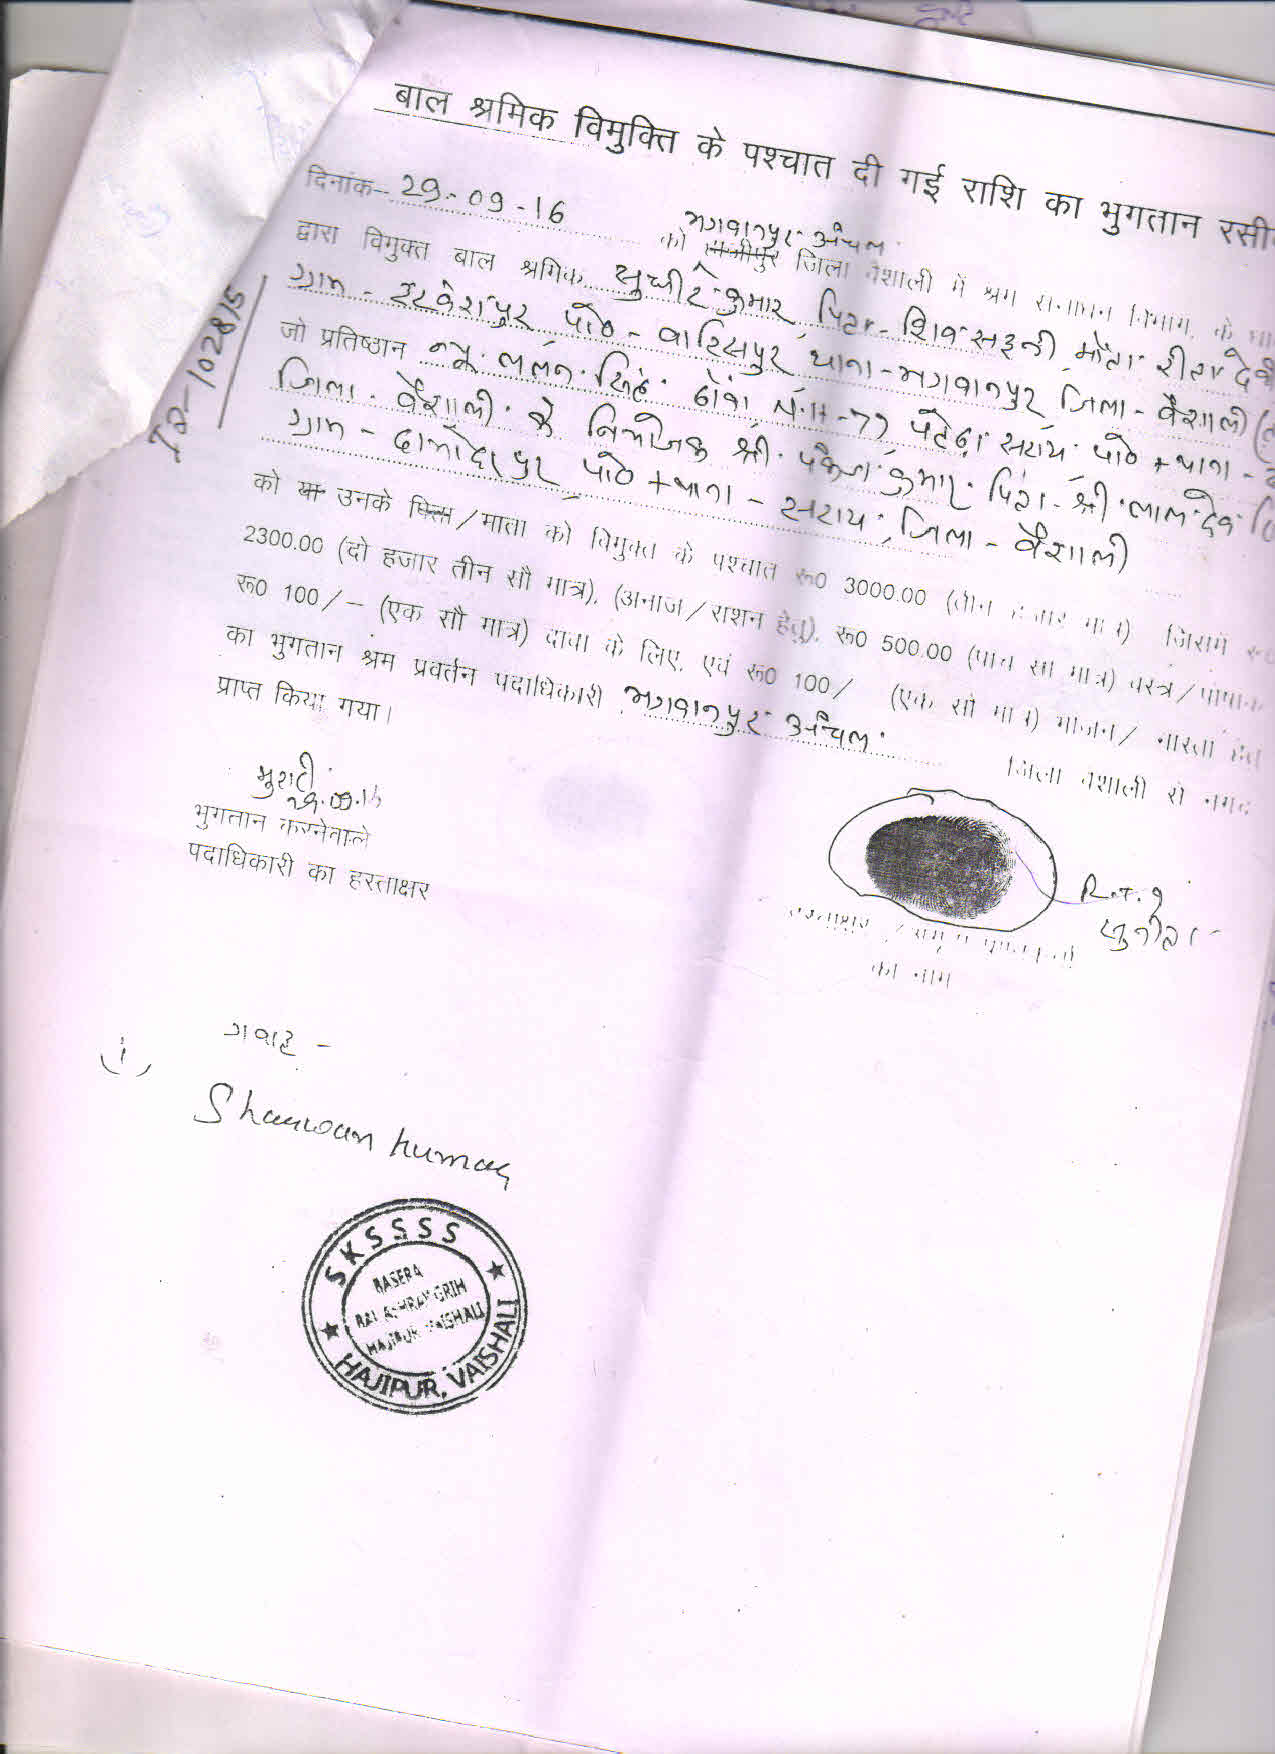 बाल श्रमिक विमुक्ति के पश्चात दी गई राशि का भुगतान
दिनांक- 29-09-16 को जिला वैशाली में श्रम संसाधन विभाग, के
भगवानपुर अंचल
द्वारा विमुक्त बाल श्रमिक कुमार पिता- शिव सहनी माता रीता देवी
ग्राम- पो०- वारिसपुर थाना- भगवानपुर जिला- वैशाली
जो प्रतिष्ठान न्यू लाईन N.H-77 सराय पो०+थाना-
जिला. वैशाली के नियोजक श्री पंकज कुमार पिता- श्री लाल देव
ग्राम- दामोदरपुर पो०+थाना- सराय, जिला- वैशाली
को या उनके पिता/माता को विमुक्त के पश्चात रू0 3000.00 (तीन हजार मात्र) जिसमें
2300.00 (दो हजार तीन सौ मात्र), (अनाज/राशन हेतु), रू0 500.00 (पांच सौ मात्र) वस्त्र/पोषाक
रू0 100/- (एक सौ मात्र) दावा के लिए, एवं रू0 100/ (एक सौ मात्र) भोजन/नास्ता हेतु
का भुगतान श्रम प्रवर्तन पदाधिकारी भगवानपुर अंचल जिला वैशाली से नगद
प्राप्त किया गया।
ID-1028/5
29.09.16
भुगतान करनेवाले
पदाधिकारी का हस्ताक्षर
R.T.I
का नाम
गवाह -
(i)
Sharwan kumar
SKSSSS
BASERA
BAL ASHRAY GRIH
HAJIPUR VAISHALI
HAJIPUR, VAISHALI